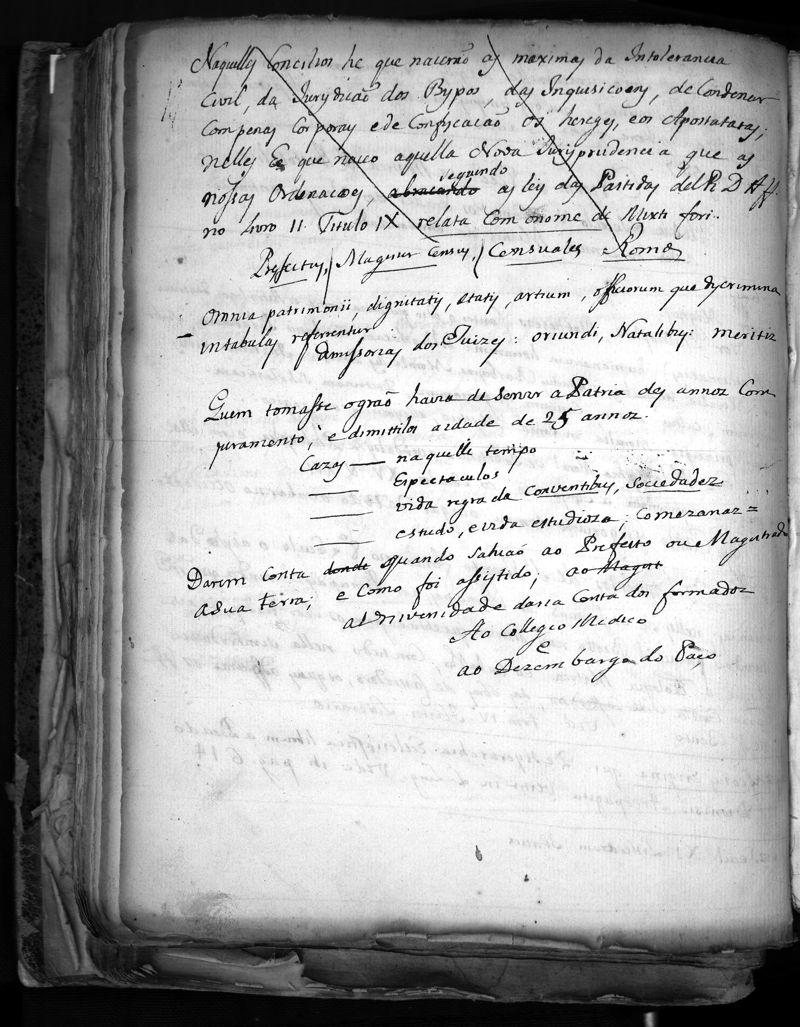 Naquelles Concilios he que nacerão as maximas da Intolerancia
Civil, da Jurysdicaõ dos Byspos, das Inquisicoens, de Condenar
Com penas Corporas e de Confiscacaõ os hereges, e os Apostatas;
nelles he que naceo aquella Nova Jurisprudencia que as
seguindo
nossas Ordenacoes, abracando as leis das Partidas del R D Aff.
no livro II. Titulo IX relata Com o nome de Mixti fori.
Prefectus, Magister Census, Censuales Romæ
Omnia patrimonii, dignitatis, etatis, artium, officiorum que dyscrimina
in tabulas referrentur
dimissorias dos Juizes: oriundi, Natalibus: meritis
Quem tomasse o grao havia de servir a Patria des annos Com
juramento, e dimittilos a idade de 25 annos.
Cazas — naquelle tempo
— Espectaculos
— vida regrada Conventibus, Sociedades
— estudo, e vida estudioza; Comezanas =
Darem Conta donde quando sahiaõ ao Prefeito ou e Magistrado
a sua terra; e Como foi assistido; ao Magist
a Universidade daria Conta dos formados
Ao Collegio Medico
ao Dezembargo do Paço